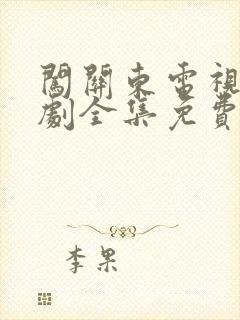 闖關東電視
劇全集免費
李果